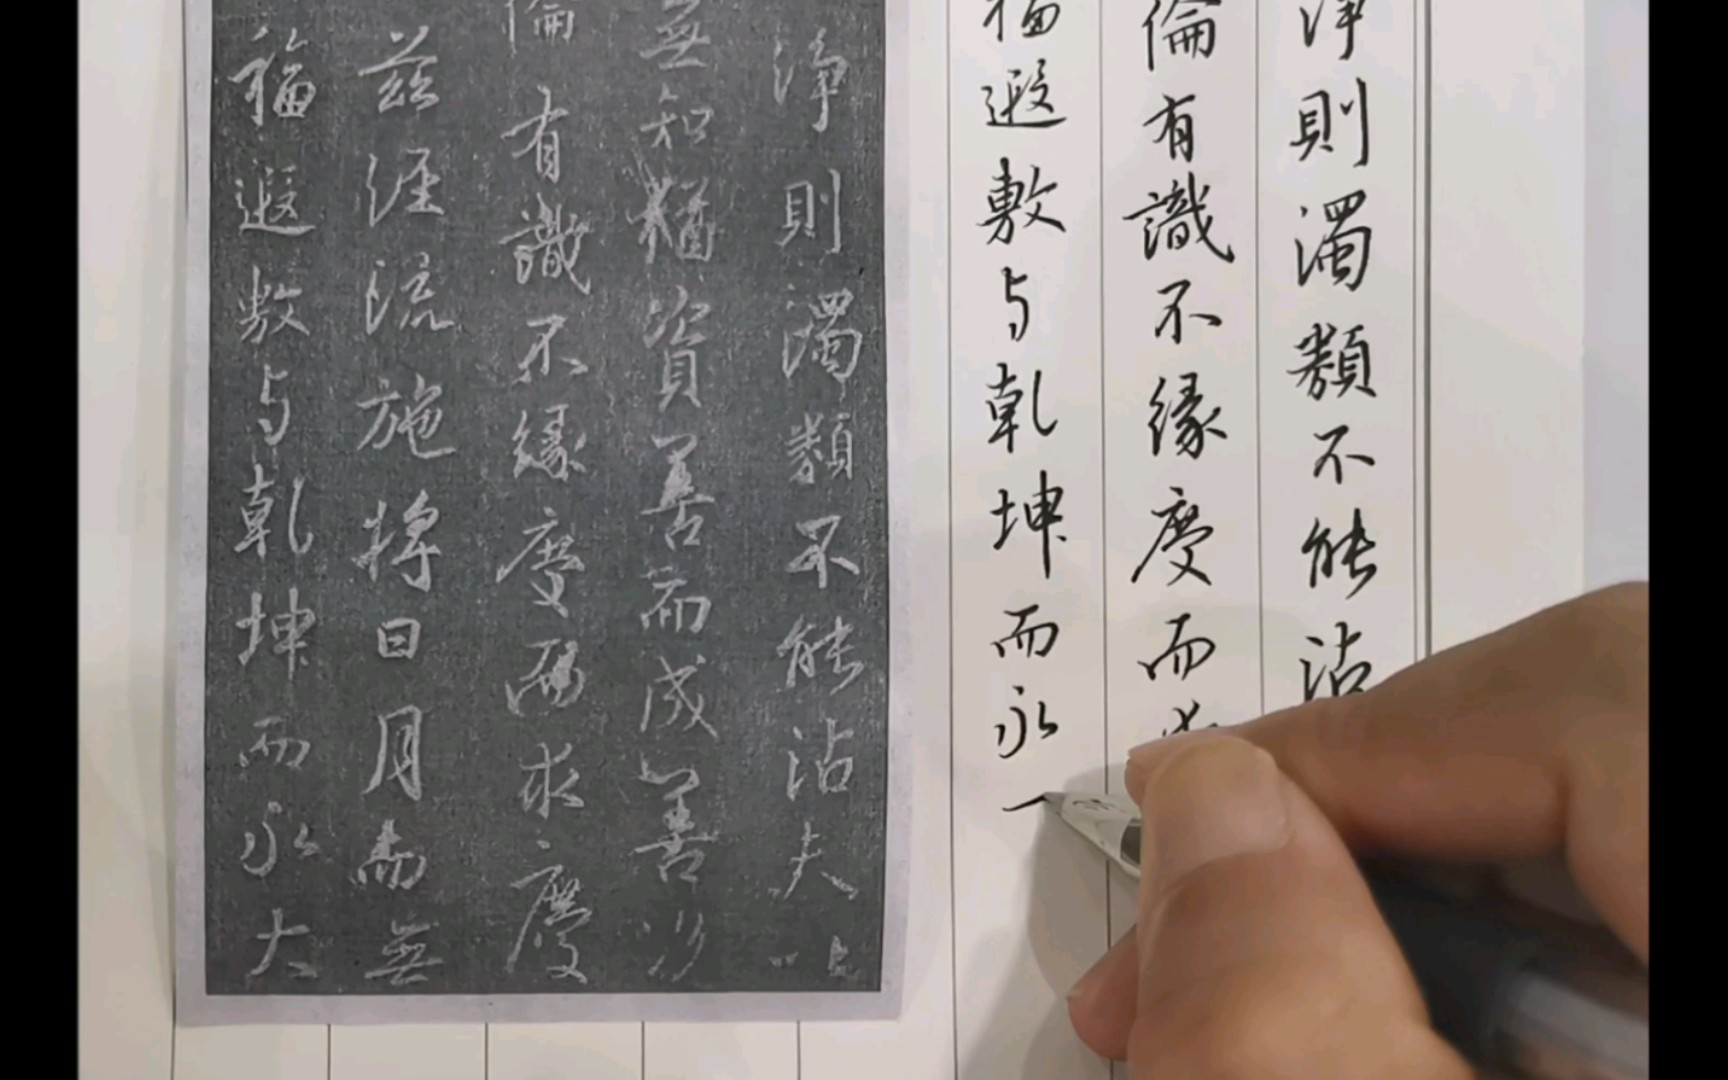 淨則濁類不能沾
倫有識不緣慶而求
福遐敷与乾坤而永
淨則濁類不能沾夫以
無知猶資善而成善況
倫有識不緣慶而求慶
茲經流施將日月而無
福遐敷与乾坤而永大